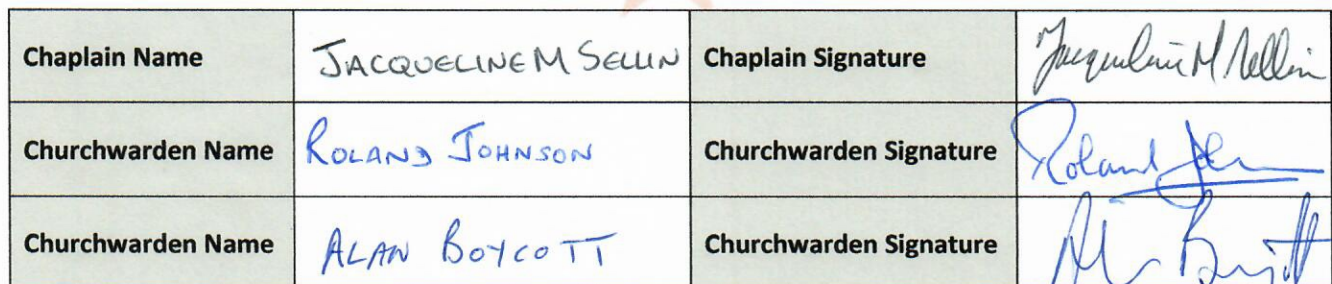 Chaplain Name JACQUELINE M SELLIN Chaplain Signature Jacqueline M Sellin
Churchwarden Name ROLAND JOHNSON Churchwarden Signature Roland Joh
Churchwarden Name ALAN BOYCOTT Churchwarden Signature